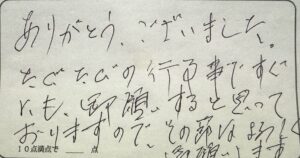 ありがとう、ございました。
たびたびの行る事ですぐ
にも、御願いすると思って
おりますので、その節はよろしく
御願いします
10点満点で 点